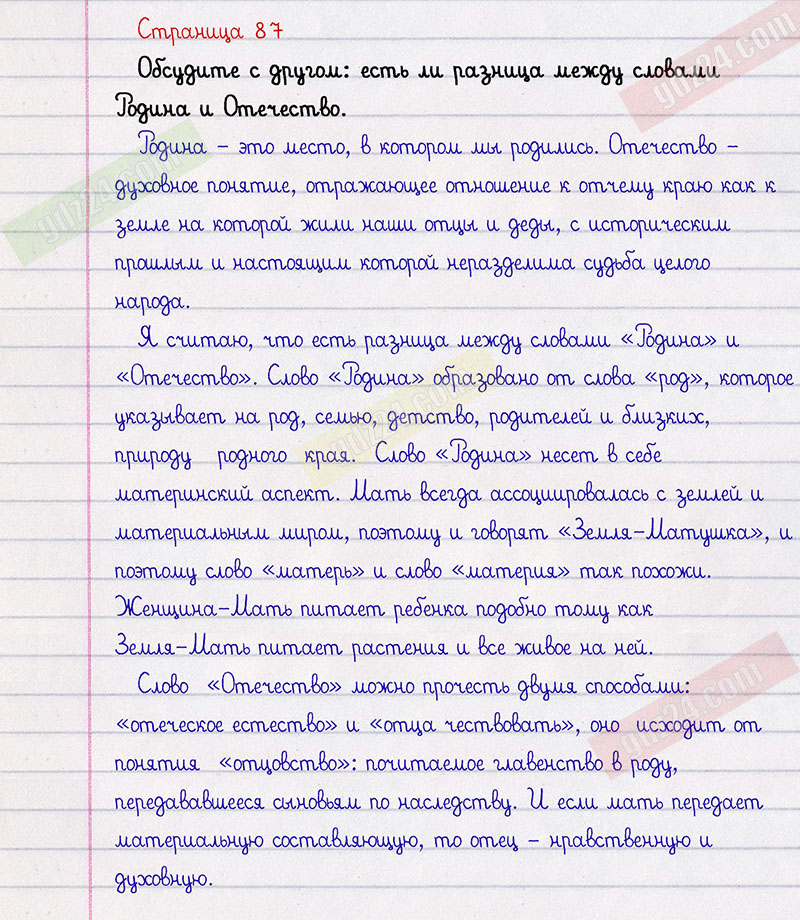 Страница 87
Обсудите с другом: есть ли разница между словами
Родина и Отечество.
Родина – это место, в котором мы родились. Отечество –
духовное понятие, отражающее отношение к отчему краю как к
земле на которой жили наши отцы и деды, с историческим
прошлым и настоящим которой неразделима судьба целого
народа.
Я считаю, что есть разница между словами «Родина» и
«Отечество». Слово «Родина» образовано от слова «род», которое
указывает на род, семью, детство, родителей и близких,
природу родного края. Слово «Родина» несет в себе
материнский аспект. Мать всегда ассоциировалась с землей и
материальным миром, поэтому и говорят «Земля-Матушка», и
поэтому слово «матерь» и слово «материя» так похожи.
Женщина-Мать питает ребенка подобно тому как
Земля-Мать питает растения и все живое на ней.
Слово «Отечество» можно прочесть двумя способами:
«отеческое естество» и «отца чествовать», оно исходит от
понятия «отцовство»: почитаемое главенство в роду,
передававшееся сыновьям по наследству. И если мать передает
материальную составляющую, то отец – нравственную и
духовную.
gdz24.com
gdz24.com
gdz24.com
gdz24.com